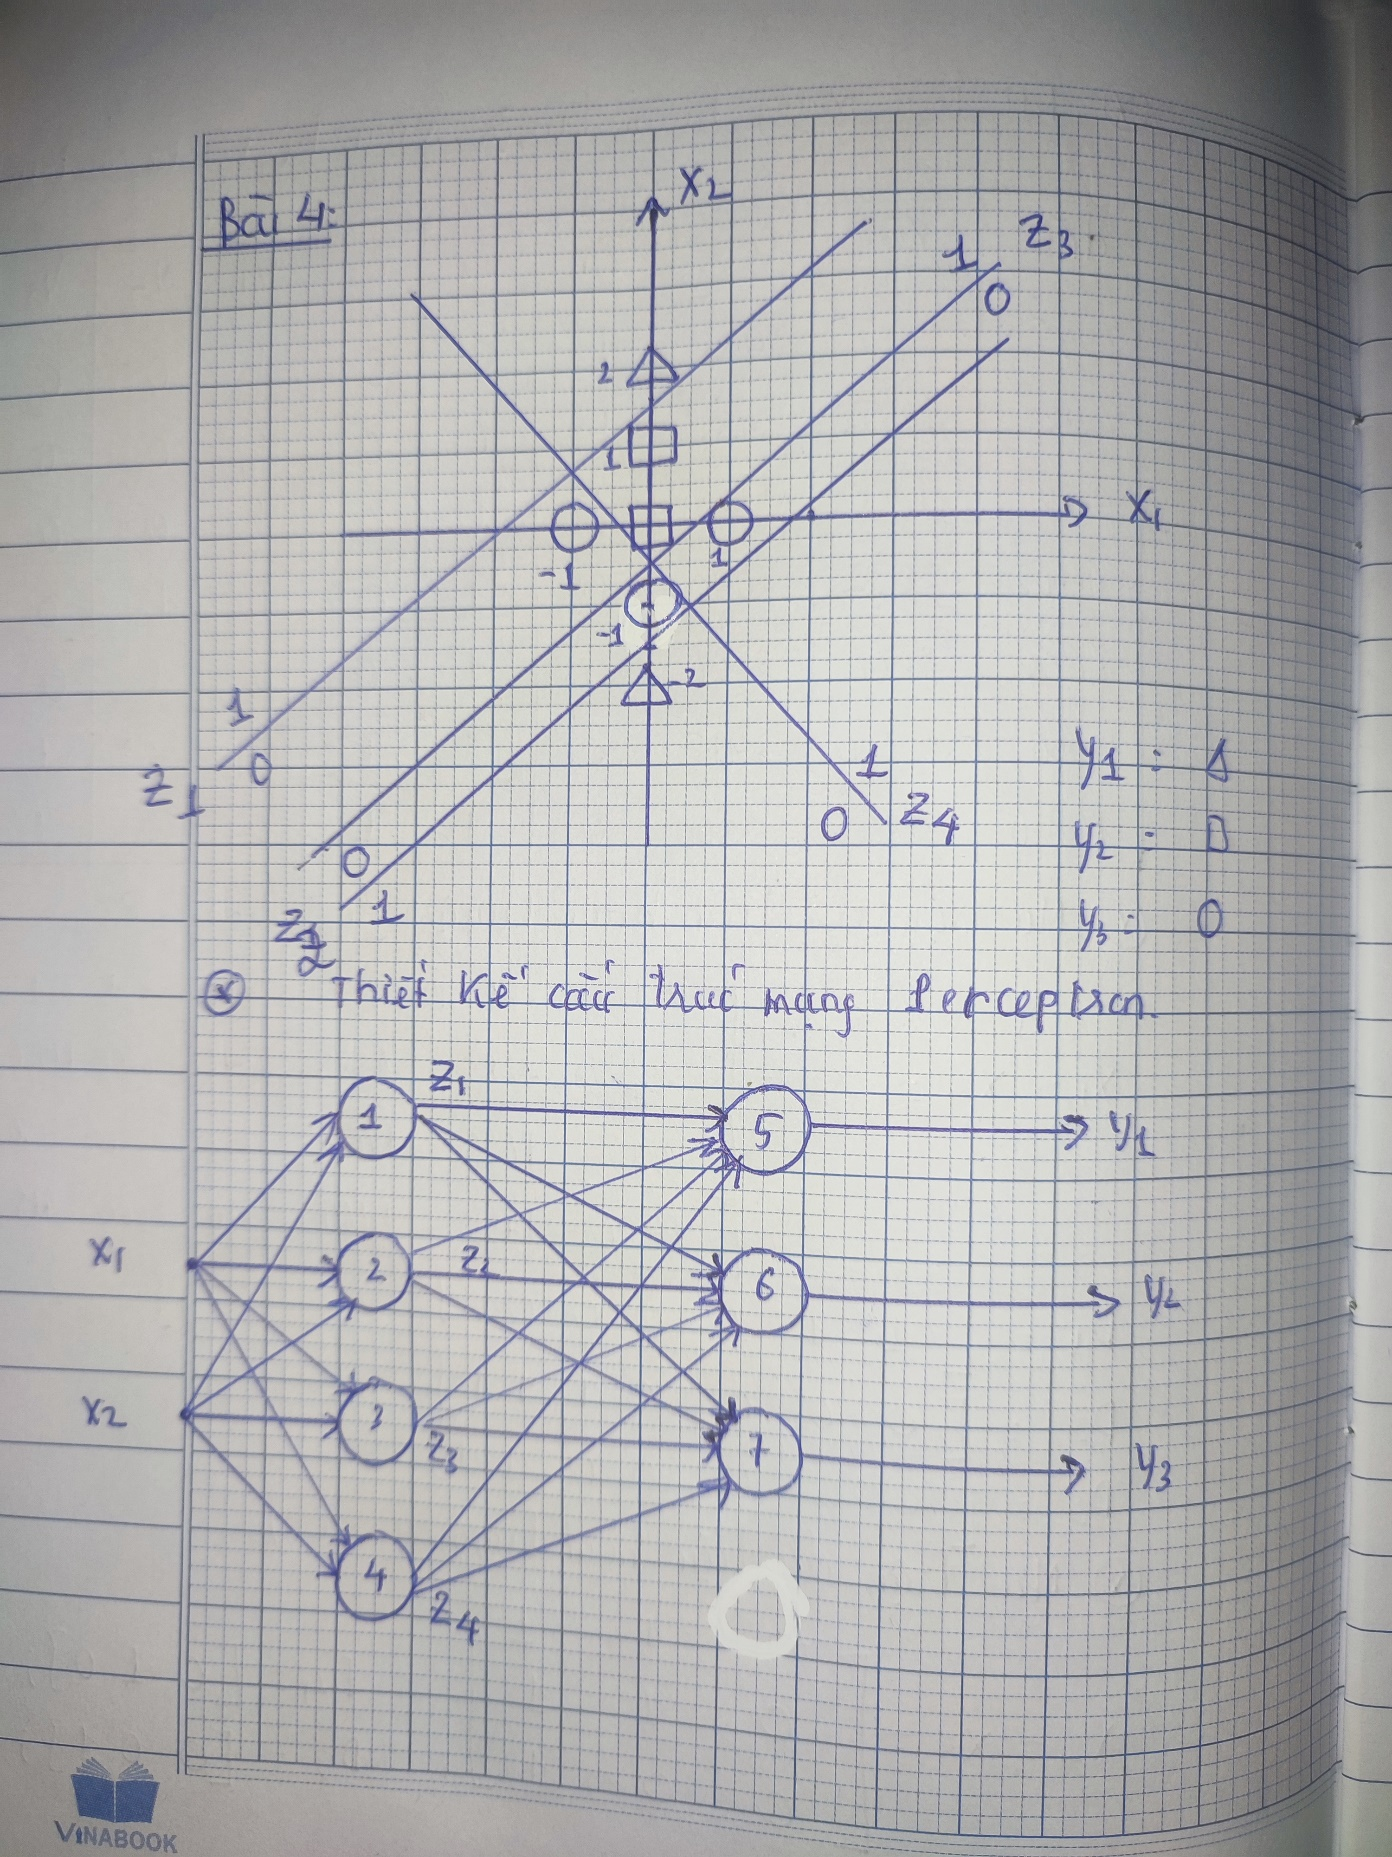 Bài 4:
X2
1 Z3
0
2
1
X1
-1 1
-1
-2
1
0
Z1
1
0 Z4
0
1
Z2
y1 : Δ
y2 : □
y3 : O
* Thiết kế cấu trúc mạng Perceptron.
Z1
1 5 y1
X1 2 Z2 6 y2
X2 3 Z3 7 y3
4 Z4
VINABOOK